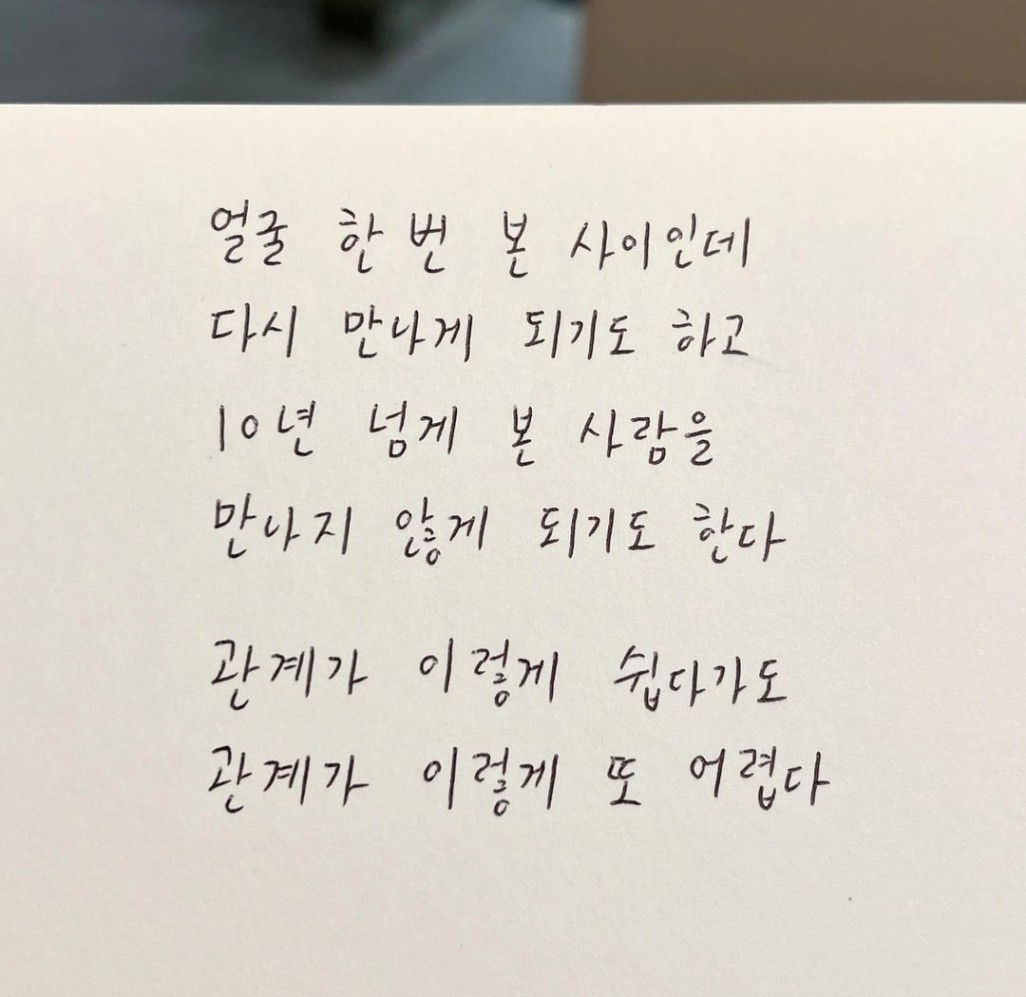 얼굴 한 번 본 사이인데
다시 만나게 되기도 하고
10년 넘게 본 사람을
만나지 않게 되기도 한다
관계가 이렇게 쉽다가도
관계가 이렇게 또 어렵다